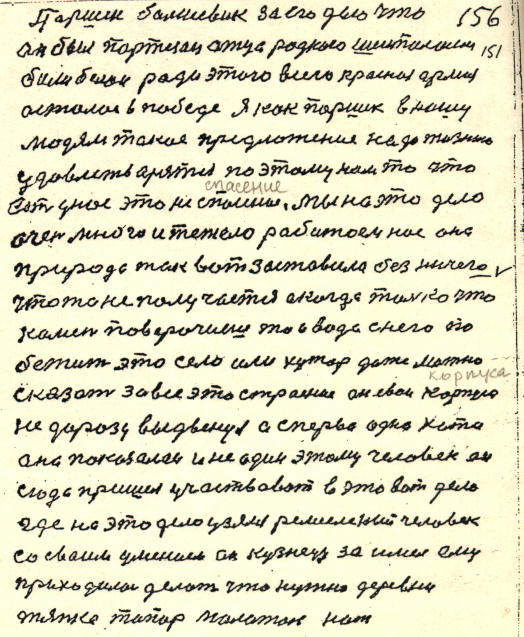 Паршек большевик за его дело что 156
он был партизан отца родного 151
били белои ради этого всего красная армия
осталося в победе Я как паршик в нашу
людям такое предложение надо
удовлетварятися по этому нам то что
спасение
есть дное это не спасение, мы на это дело
очен много и тежело работоем нас она
природа так вот заставила без ничего
что то не получается а когда толко что
камен поворочиш то а вода с него по
бежит это село или хутор даже можно
корпуса
сказат за все это строение он свои корпуса
не дорозу выдвенул а сперва одна хата
она показалася и не один этому человек он
сюда пришел участвоват в это вот дело
где на это дело узялся ремиселный человек
со своим умением он кузнец за имел ему
приходилос делат что нужно деревни
тяпка тапор малаток нож